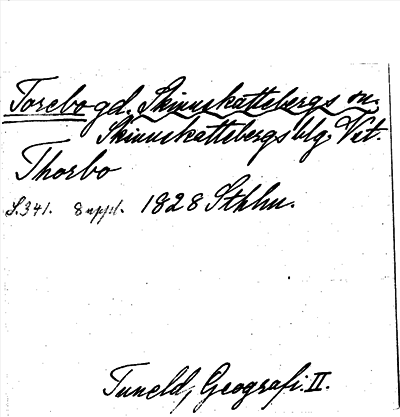 Torebo gd. Skinnskattebergs sn.
Skinnskattebergs blg. Vst.
Thorbo
S. 341. 8 uppl. 1828 Sthlm.
Tuneld, Geografi. II.